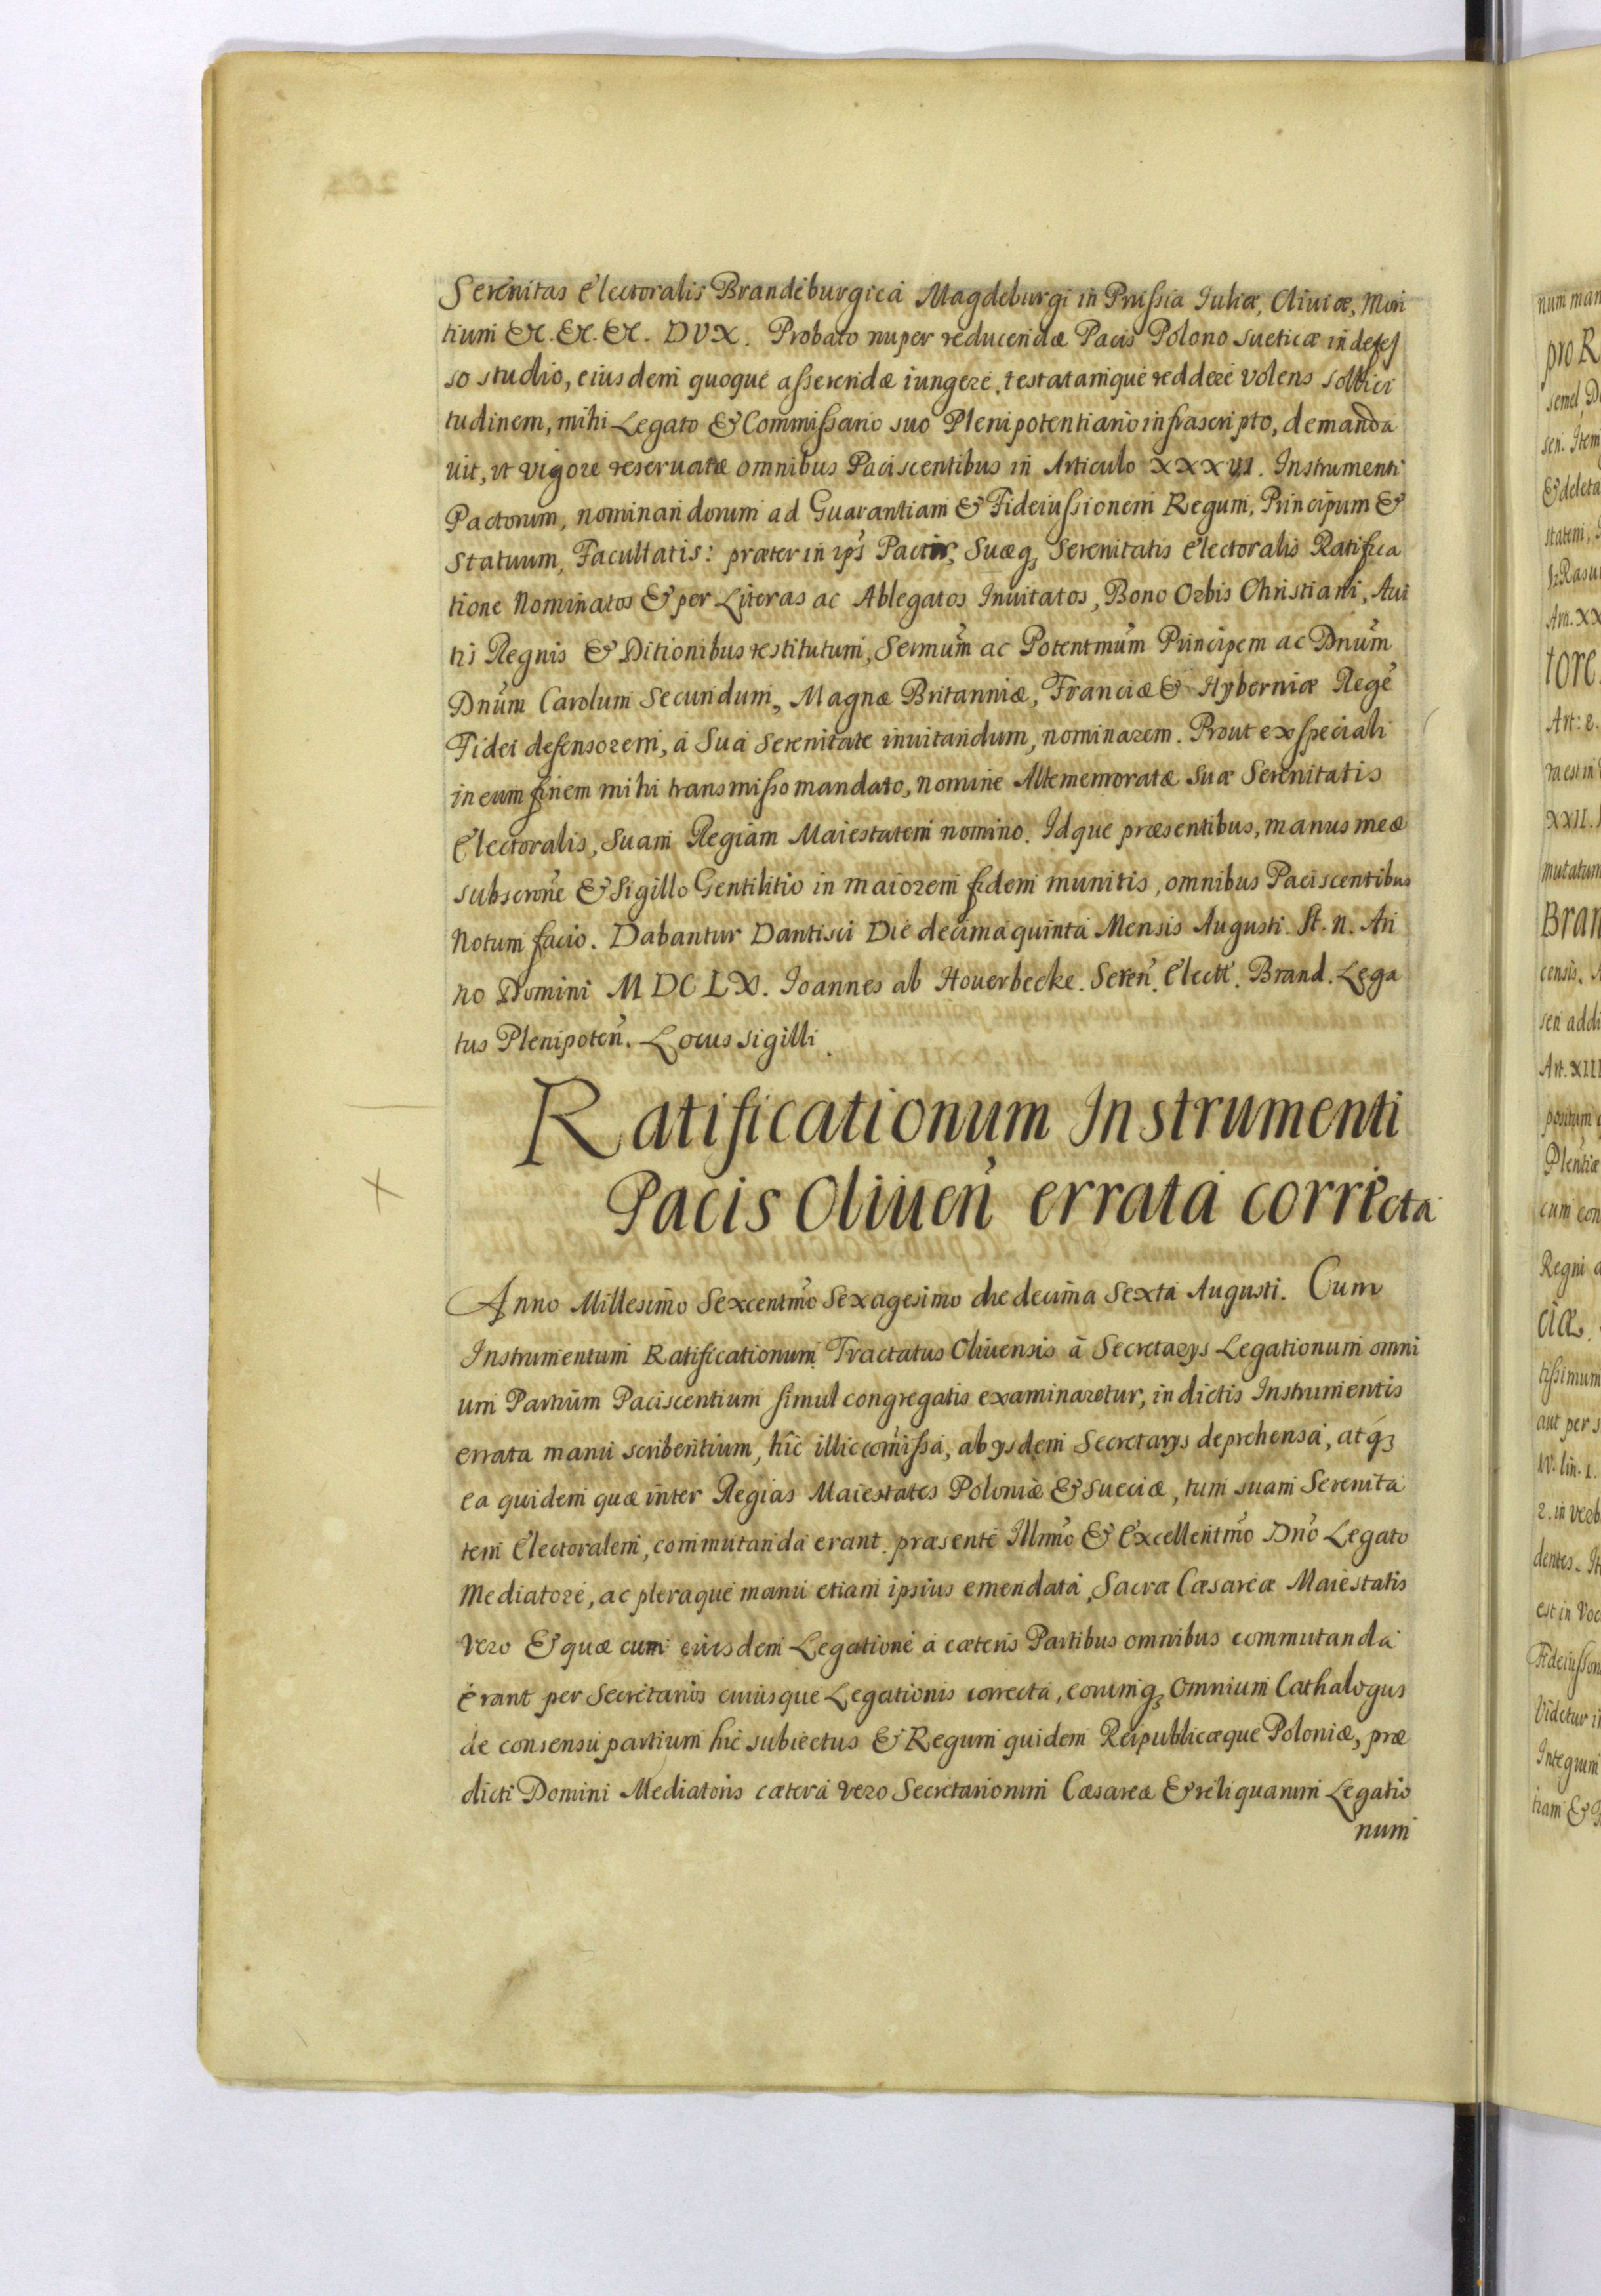 Serenitas Electoralis Brandeburgica Magdeburgi in Prussia Iuliæ, Cliuiæ, Mon
tium &c. &c. &c. DVX. Probato nuper reducendæ Pacis Polono Sueticæ indefes
so studio, eiusdem quoque asserendæ iungere, testatamque reddere volens sollici
tudinem, mihi Legato & Commissario suo Plenipotentiario infrascripto, demanda
uit, vt vigore reseruatæ omnibus Paciscentibus in Articulo XXXVI. Instrumenti
Pactorum, nominandorum ad Guarantiam & Fideiussionem Regum, Principum &
Statuum, Facultatis: præter in ips̃ Pactis, Suæq; Serenitatis Electoralis Ratifica
tione Nominatos & per Literas ac Ablegatos Inuitatos, Bono Orbis Christiani, Aui
tis Regnis & Ditionibus restitutum, Sermũm ac Potentmũm Principem ac Dnũm
Dnũm Carolum Secundum, Magnæ Britanniæ, Franciæ & Hyberniæ Regẽ
Fidei defensorem, à Sua Serenitate inuitandum, nominarem. Prout ex speciali
in eum finem mihi transmisso mandato, nomine Altememoratæ Suæ Serenitatis
Electoralis, Suam Regiam Maiestatem nomino. Idque præsentibus, manus meæ
subscrõne & Sigillo Gentilitio in maiorem fidem munitis, omnibus Paciscentibus
Notum facio. Dabantur Dantisci Die decima quinta Mensis Augusti. St. n. An
no Domini MDCLX. Ioannes ab Houerbecke. Sereñ. Elect̃. Brand. Lega
tus Plenipoteñ. Locus sigilli.
Ratificationum Instrumenti
Pacis Oliueñ errata correcta
Anno Millesimõ Sexcentmõ Sexagesimo die decima Sexta Augusti. Cum
Instrumentum Ratificationum Tractatus Oliuensis à Secretarys Legationum omni
um Partium Paciscentium simul congregatis examinaretur, in dictis Instrumentis
errata manu scribentium, hîc illic com̃issa, ab ysdem Secretarys deprehensa, atq;
ea quidem quæ inter Regias Maiestates Poloniæ & Sueciæ, tum suam Serenita
tem Electoralem, commutanda erant. præsente Illmõ & Excellentmõ Dnõ Legato
Mediatore, ac pleraque manu etiam ipsius emendata, Sacræ Cæsareæ Maiestatis
vero & quæ cum eiusdem Legatione à cæteris Partibus omnibus commutanda
erant per Secretarios cuiusque Legationis correcta, eorumq; omnium Cathalogus
de consensu partium hic subiectus & Regum quidem Reipublicæque Poloniæ, præ
dicti Domini Mediatoris cætera vero Secretariorum Cæsareæ & reliquarum Legatio
num